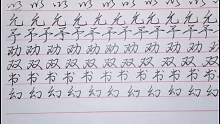 以 以 以 以 以 以 以 以 以
允 允 允 允 允 允 允 允 允
予 予 予 予 予 予 予 予 予
劝 劝 劝 劝 劝 劝 劝 劝 劝
双 双 双 双 双 双 双 双 双
书 书 书 书 书 书 书 书 书
幻 幻 幻 幻 幻 幻 幻 幻 幻